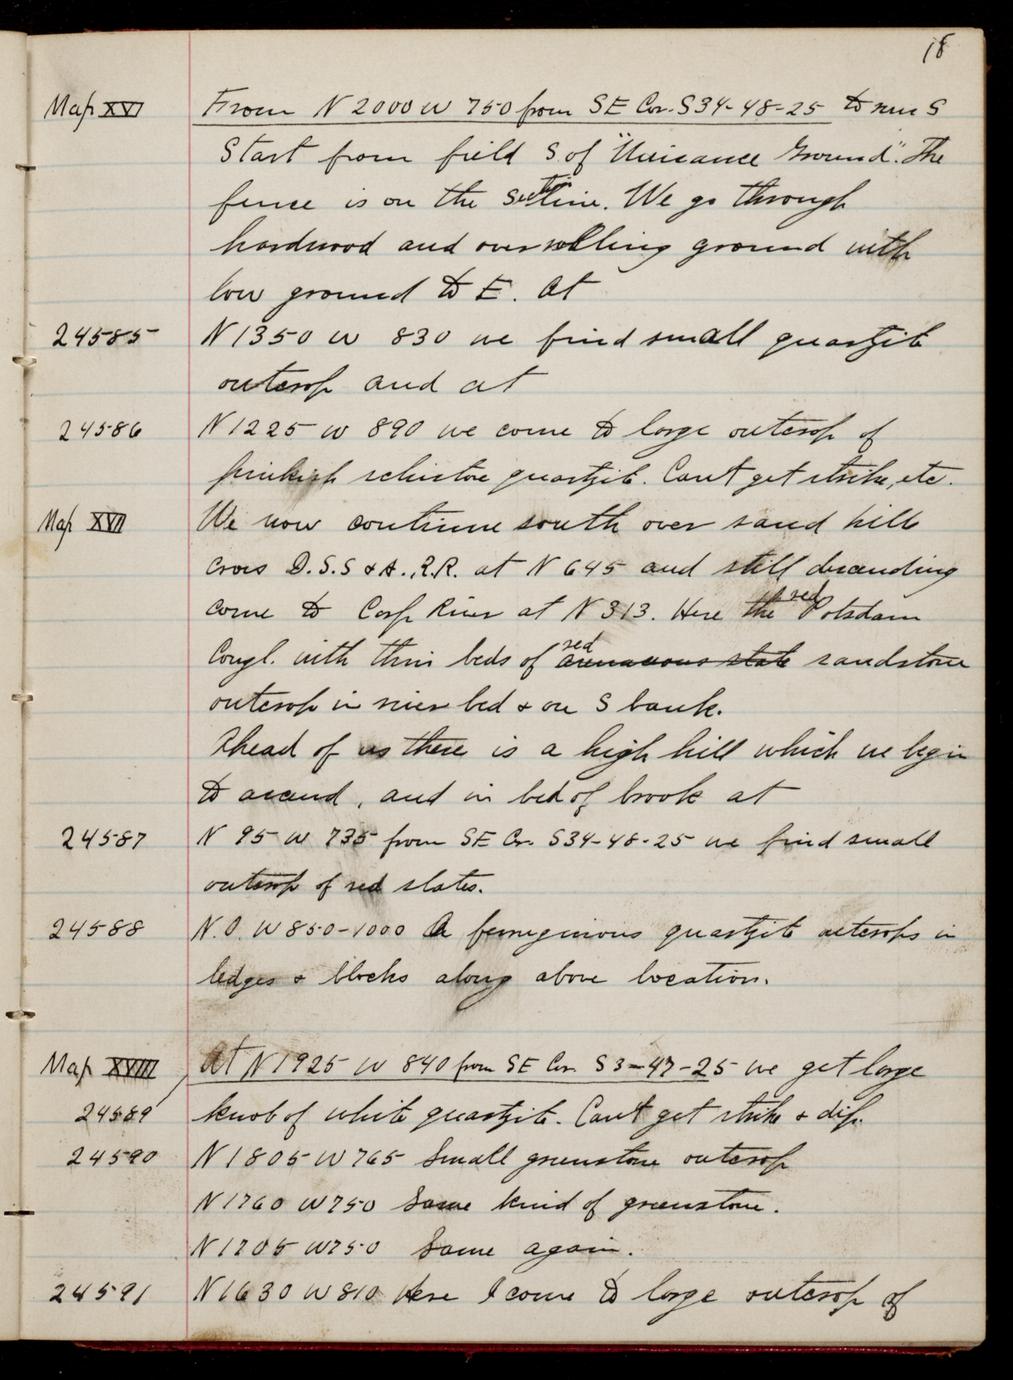 18
Map XVI From N 2000 W 750 from SE Cor. S34-48-25 to run S
Start from field S of "Nuicance Ground". The
fence is on the section line. We go through
hardwood and over rolling ground with
low ground to E. At
24585 N 1350 W 830 we find small quartzite
outcrop and at
24586 N 1225 W 890 we come to large outcrop of
pinkish schistose quartzite. Can't get strike, etc.
Map XVII We now continue south over sand hills
cross D.S.S & A. R.R. at N 645 and still decending
come to Carp River at N 313. Here the red Potsdam
Congl. with thin beds of red arenaceous slate sandstone
outcrop in river bed & on S bank.
Ahead of us there is a high hill which we begin
to ascend, and in bed of brook at
24587 N 95 W 735 from SE Cor. S34-48-25 we find small
outcrop of red slates.
24588 N.0. W 850-1000 A ferruginous quartzite outcrops in
ledges & blocks along above location.
Map XVIII At N 1925 W 840 from SE Cor. S 3-47-25 we get large
24589 knob of white quartzite. Can't get strike & dip.
24590 N 1805 W 765 Small greenstone outcrop
N 1760 W 750 Same kind of greenstone.
N 1705 W 750 Same again.
24591 N 1630 W 810 Here I come to large outcrop of